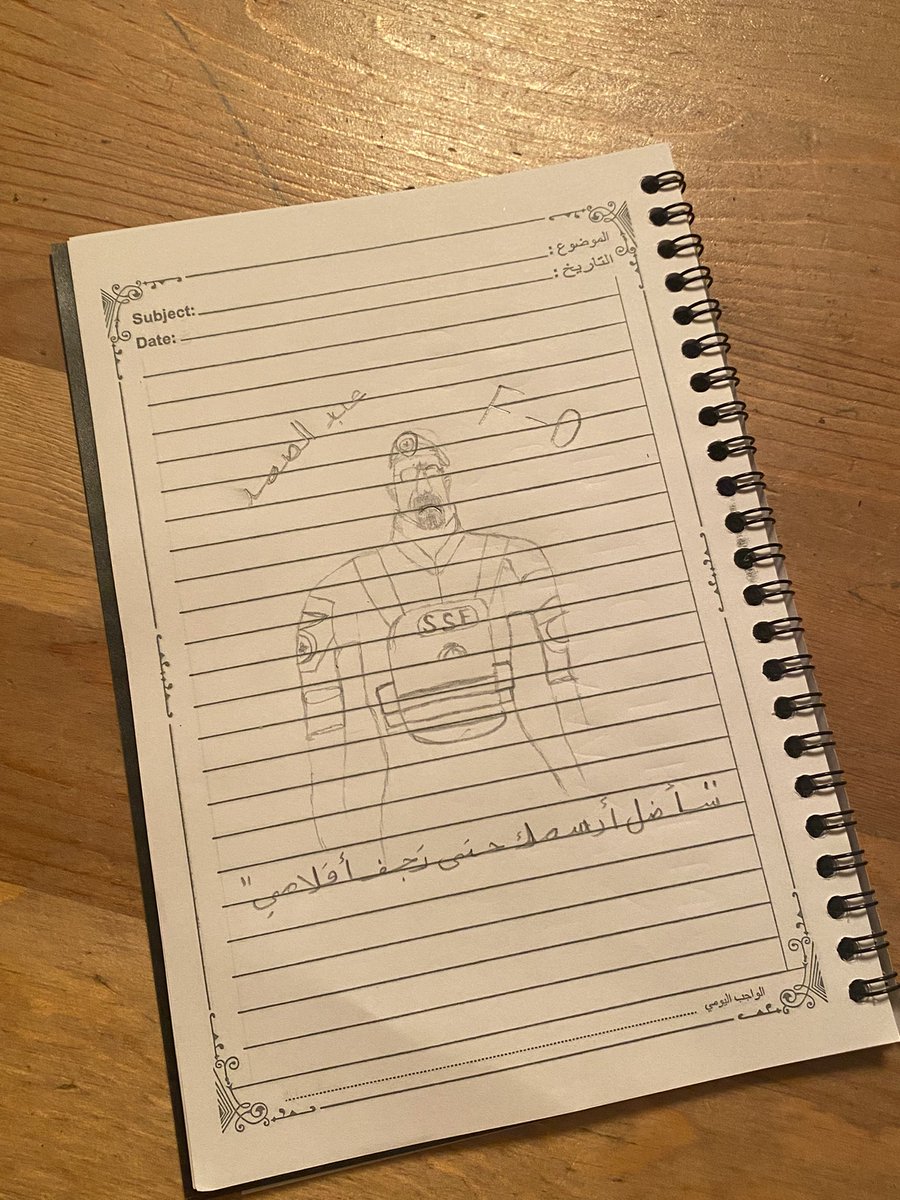 الموضوع :
التاريخ :
Subject:
Date:
عبد الصمد
F-O
SSF
"سأضل أرسمك حتى تجف أقلامي"
الواجب اليومي